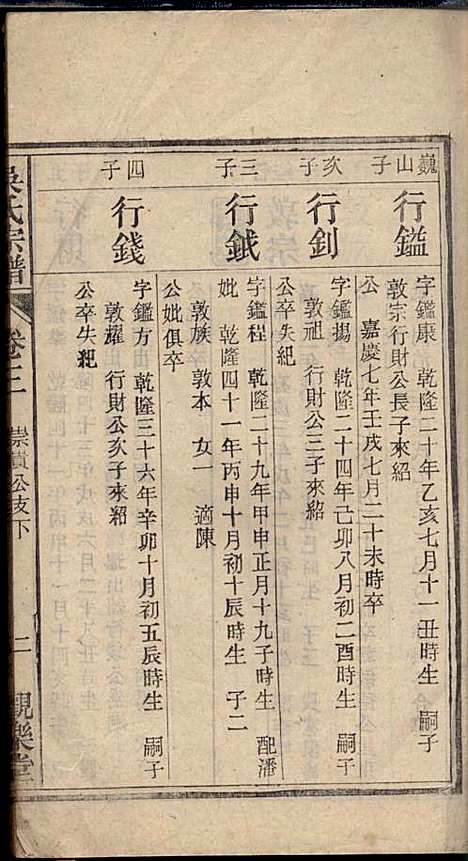 巍山子
行鎰
字鑑康 乾隆二十年乙亥七月十一丑時生 嗣子
敦宗行財公長子來紹
公 嘉慶七年壬戌七月二十未時卒
次子
行釗
字鑑揚 乾隆二十四年己卯八月初二酉時生 嗣子
敦祖 行財公三子來紹
公卒失紀
三子
行鉞
字鑑程 乾隆二十九年甲申正月十九子時生 配潘
妣 乾隆四十一年丙申十月初十辰時生 子二
敦族 敦本 女一 適陳
公妣俱卒
四子
行錢
字鑑方 乾隆三十六年辛卯十月初五辰時生 嗣子
敦耀 行財公次子來紹
公卒失紀
吳氏宗譜
卷三 崇貴公支下
二
觀樂堂